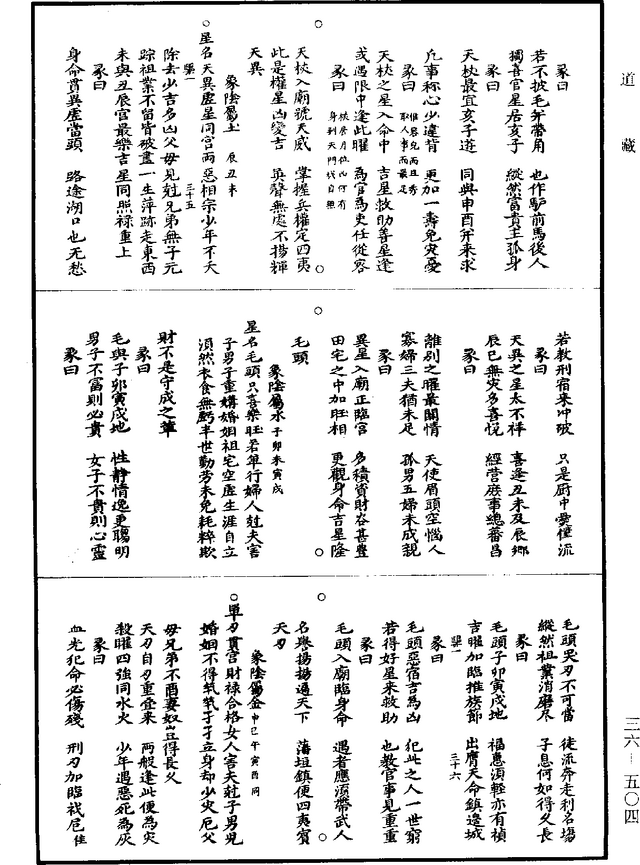 道藏
彖曰
若不披毛并帶角　也作驢前馬後人
獨喜官星居亥子　縱然富貴主孤身
彖曰
天杖最宜亥子遊　同與申酉并來求
凡事称心少違背　更加一壽免灾憂
彖曰
天杖之星入命中　吉星救助善星逢
或遇限中逢此曜　為官為吏任從容
彖曰
天杖入廟號天威　掌握兵權定四夷
此是權星凶變吉　英聲無處不揚輝
天異
象陰屬土　辰丑未
星名天異虛星同宫兩惡相宗少年不夭
除去少吉多凶父母見尅兄弟無子元
踪祖業不留皆破盡一生萍跡走東西
未與丑辰宫最樂吉星同照禄重上
彖曰
身命貫異虛當頭　路途湖口也无愁
若教刑宿来冲破　只是厨中㸑僮流
彖曰
天異之星太不祥　喜逢丑未及辰鄉
辰巳無灾多喜悅　經营庶事總蕃昌
彖曰
離别之曜最關情　天使眉頭空惱人
寡婦三夫猶未足　孤男五婦未成親
彖曰
異星入廟正臨官　多積資財谷甚豊
田宅之中加旺相　更觀身命吉星隆
毛頭
象陰屬水　子卯未寅戌
星名毛頭只喜樂旺若單行婦人尅夫害
子男子重媾婚姻祖宅空虛生涯自立
須然衣食無虧半世勤劳未免耗粹欺
財不是守成之輩
彖曰
毛與子卯寅戌地　性靜情逸更聰明
男子不富則必貴　女子不貴則心靈
彖曰
毛頭哭刃不可當　徒流奔走利名塲
縱然祖業消磨尽　子息何如得久長
彖曰
毛頭子卯寅戌地　福惠須輕亦有禎
吉曜加臨推旌節　出膺天命鎮邉城
彖曰
毛頭惡宿吉為凶　犯此之人一世窮
若得好星来救助　也教官事見重重
彖曰
毛頭入廟臨身命　遇者應須帶武人
名譽揚揚過天下　藩垣鎮便四夷賓
天刃
象陰屬金　申巳午寅酉同
單刃貫宫財禄合格女人害夫尅子男児
婚姻不得㷀㷀孑孑立身却少灾厄父
母兄弟不酉妻奴豈得長久
天刃自刃重叠来　兩般逢此便為灾
殺曜四強同水火　少年遇惡死為灰
彖曰
血光犯命必傷殘　刑刃加臨戕厄隹
三六—五〇四